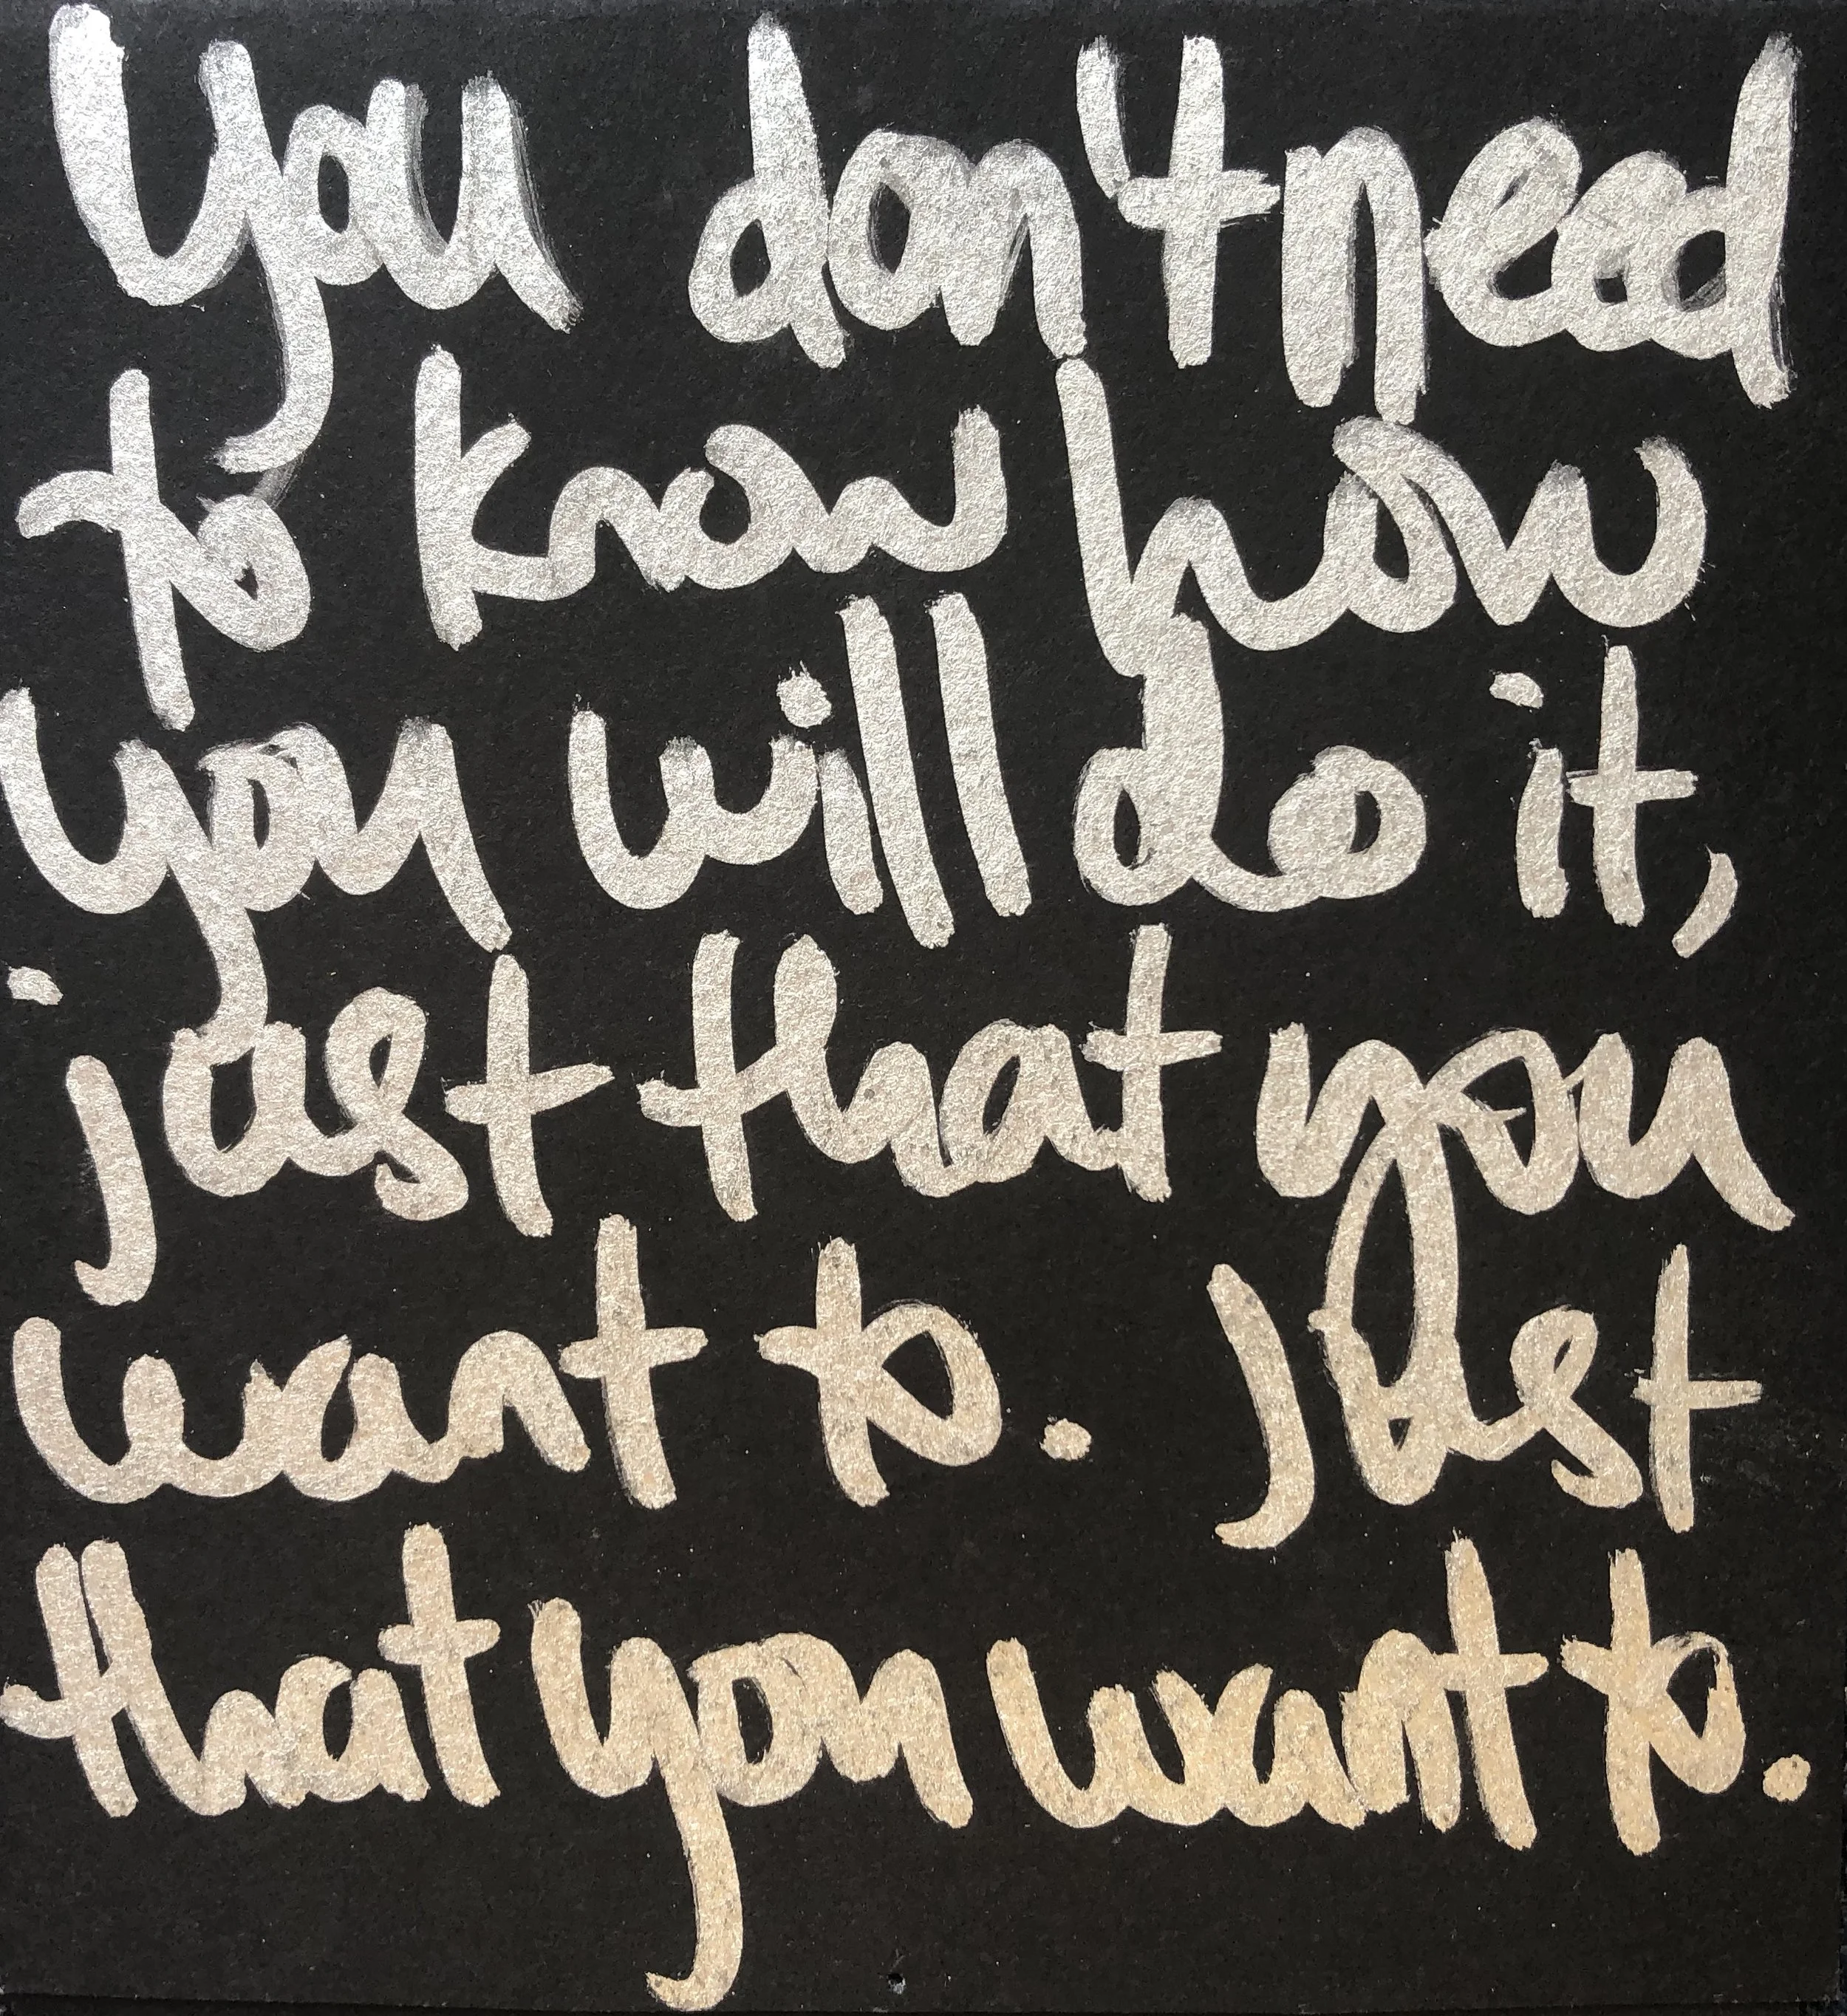 You don't need
to know how
you will do it,
just that you
want to. Just
that you want to.